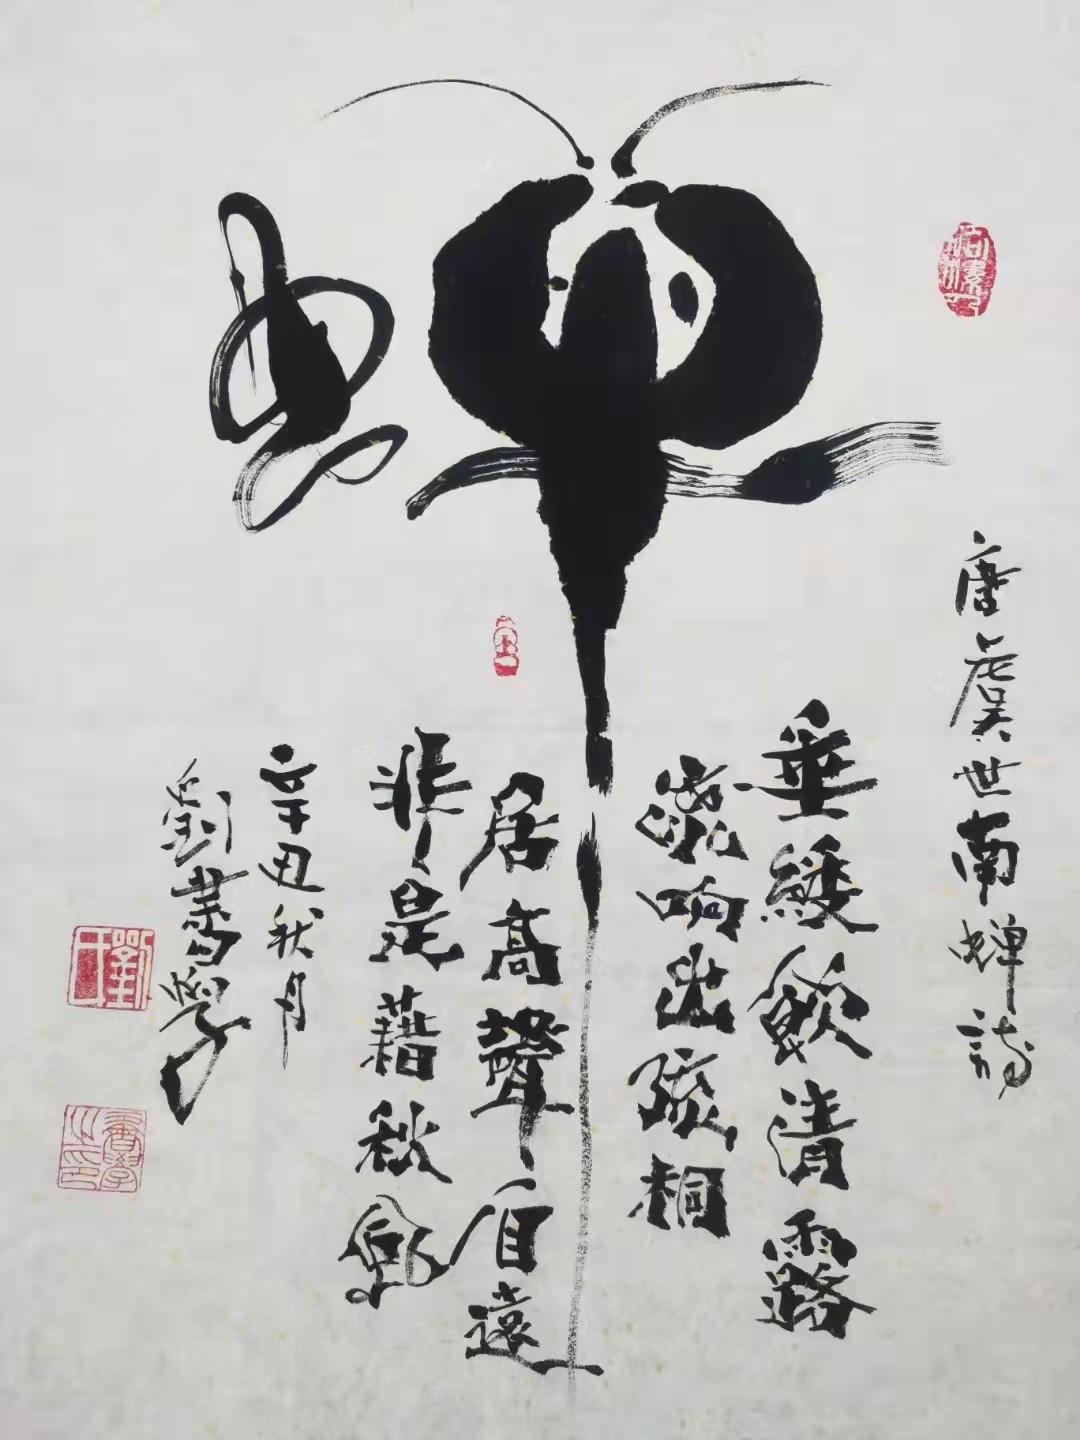 蝉
唐虞世南蝉詩
垂緌飲清露
流响出疏桐
居高聲自遠
非是藉秋風
辛丑秋月
劉書學